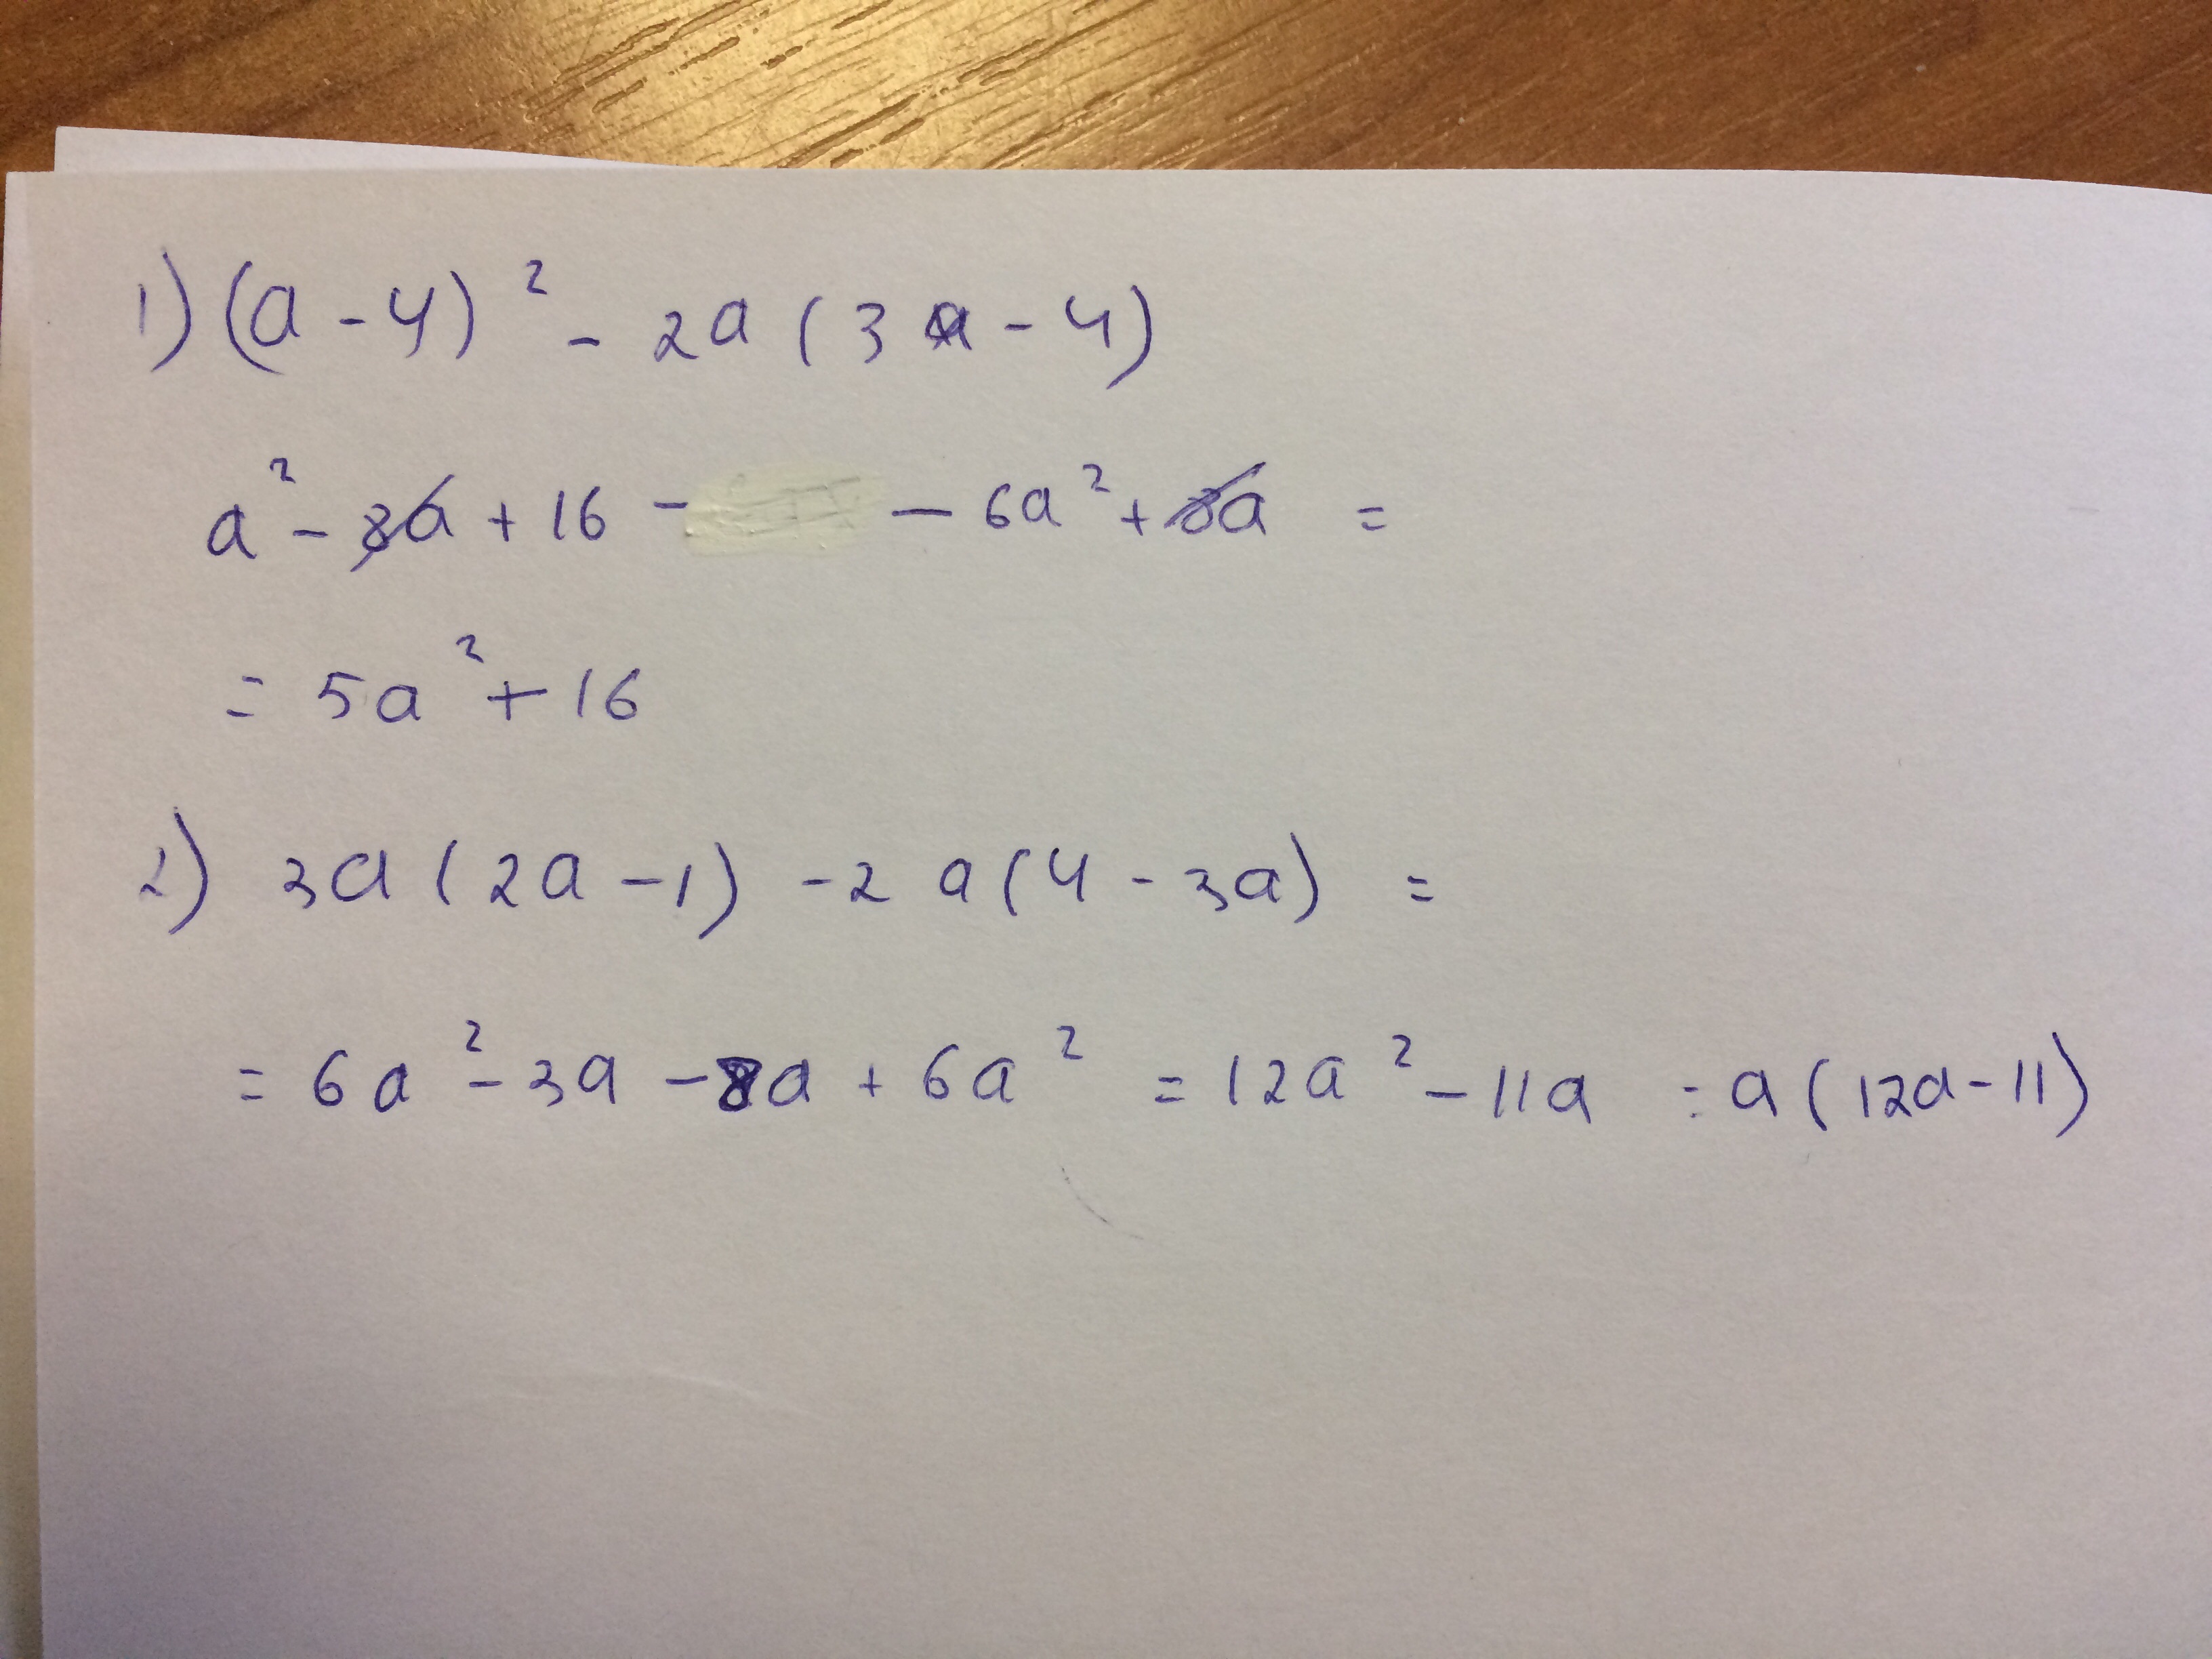 1) (a - 4)² - 2a (3a - 4)
a² - 8a + 16 - - 6a² + 8a =
= 5a² + 16
2) 3a (2a - 1) - 2a (4 - 3a) =
= 6a² - 3a - 8a + 6a² = 12a² - 11a = a (12a - 11)